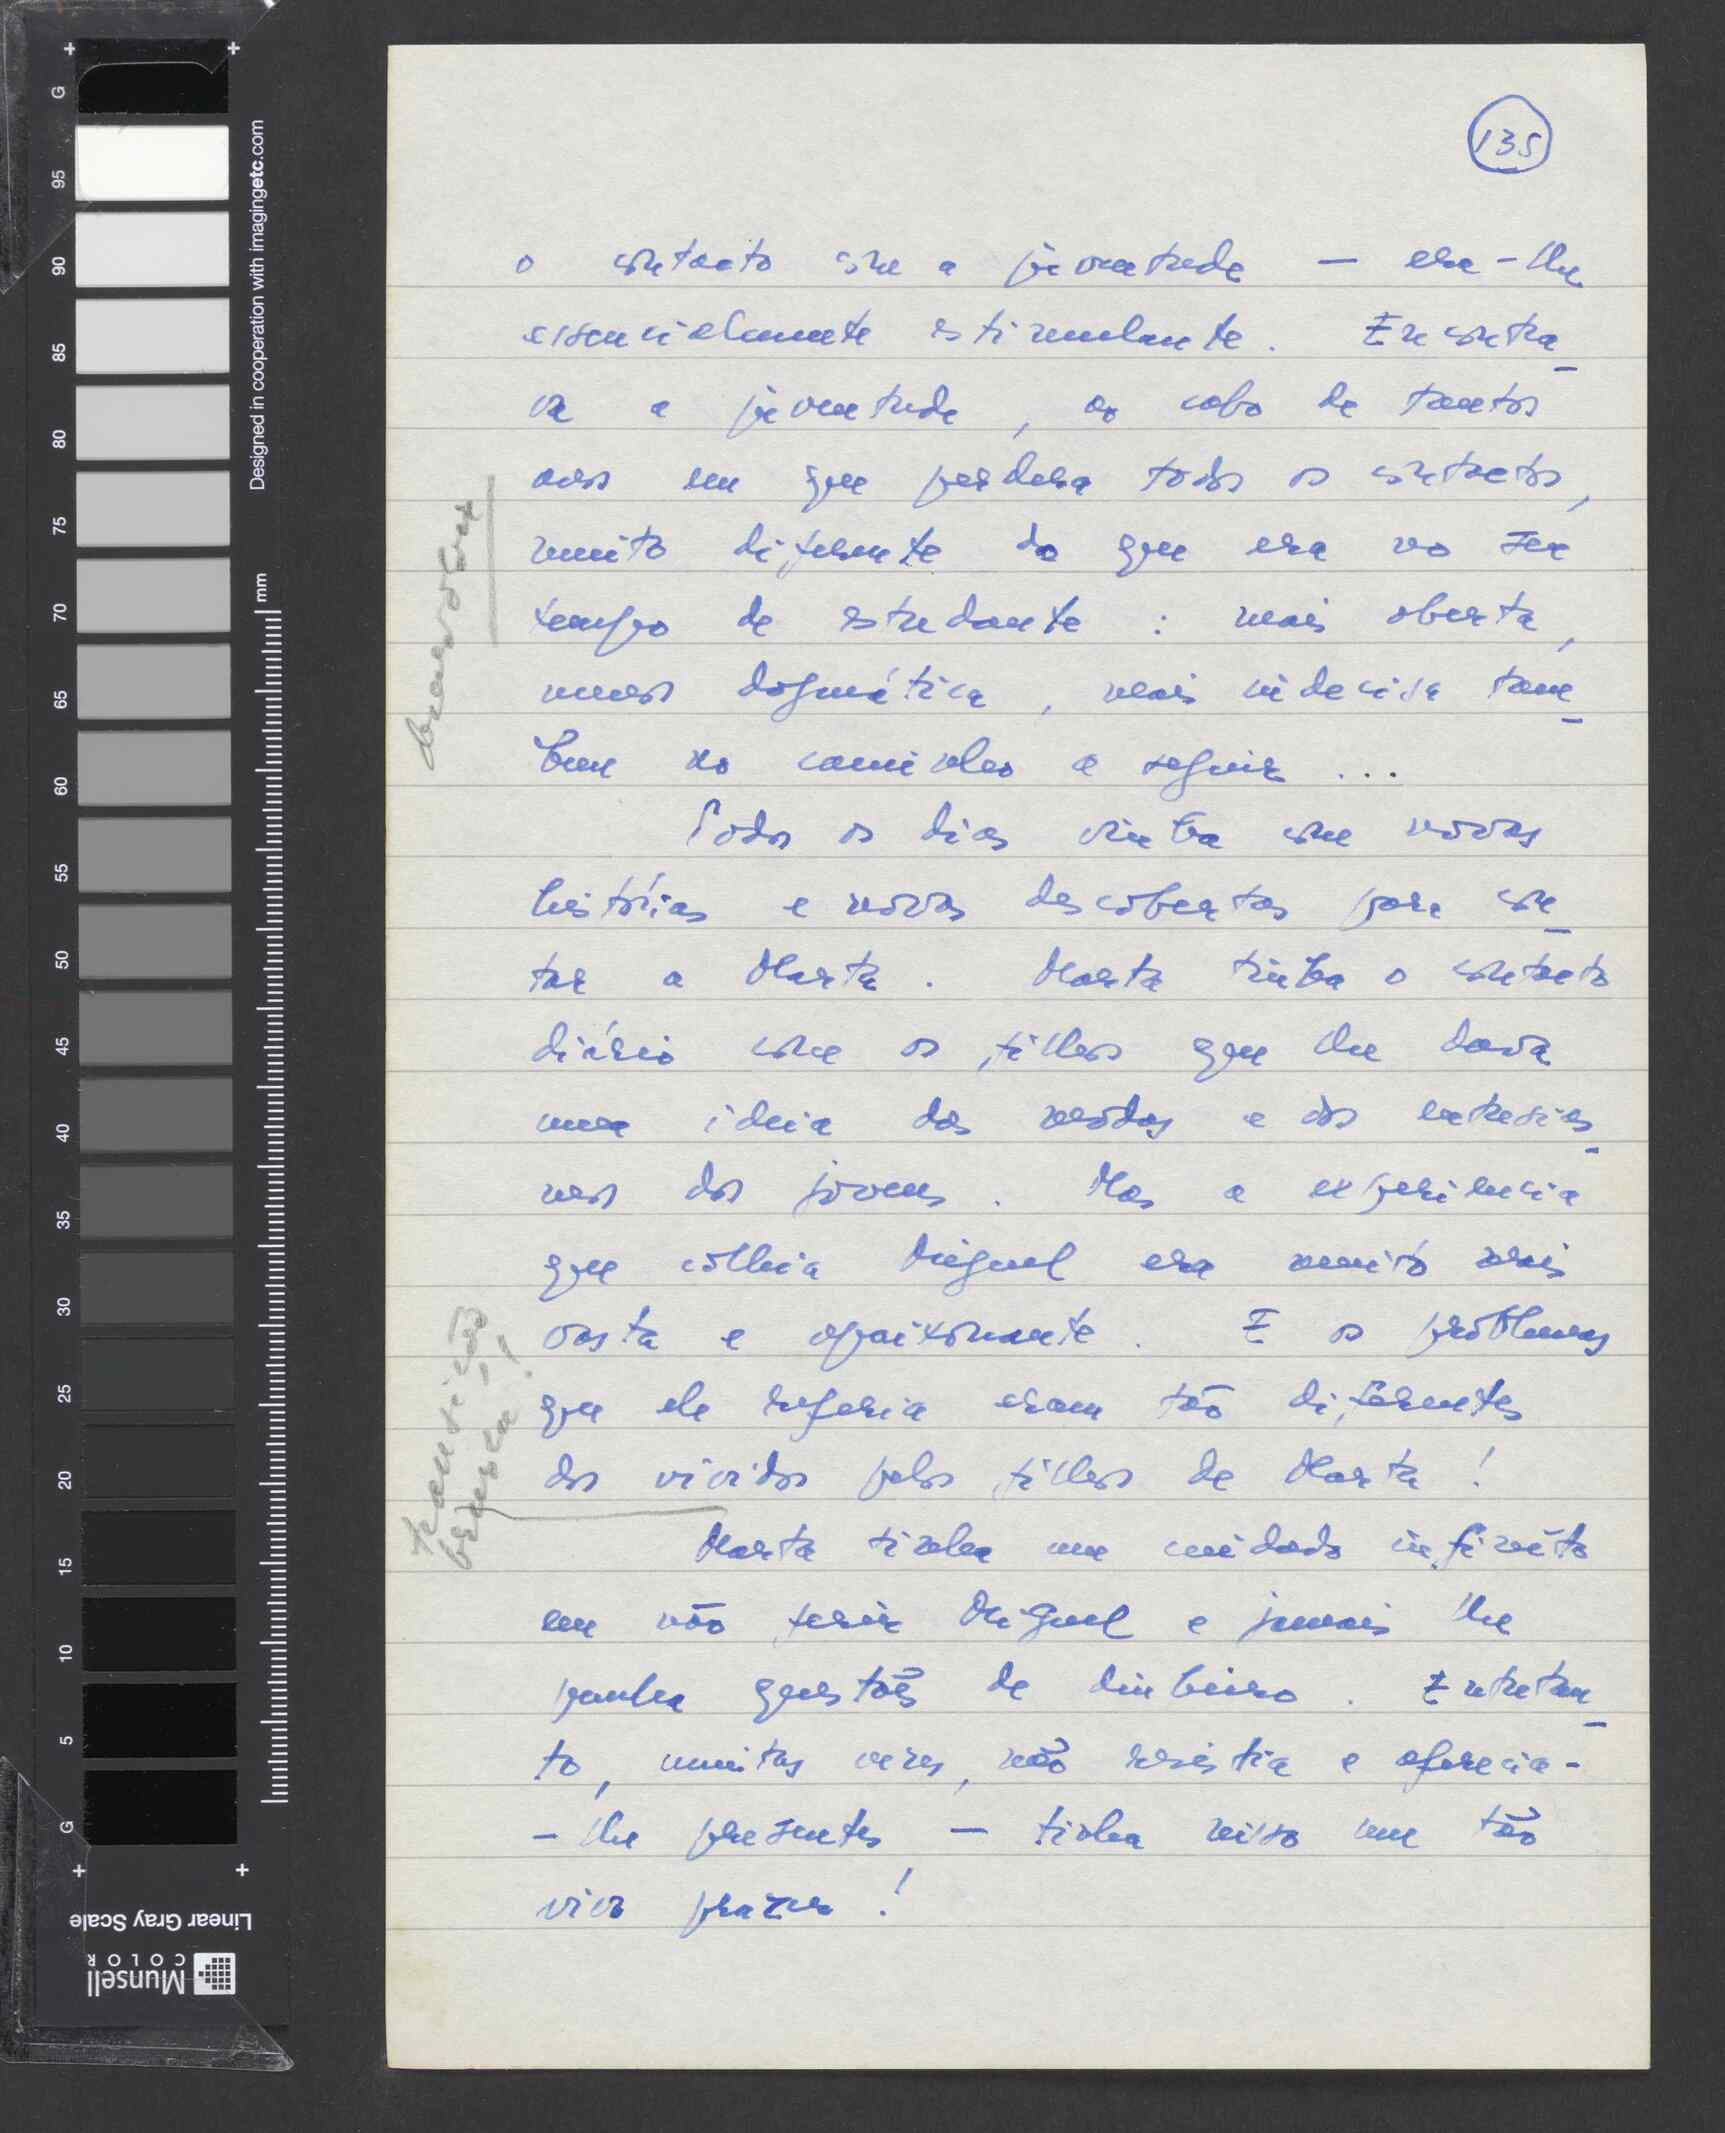 135
o contacto com a juventude — era-lhe
essencialmente estimulante. Encontra-
va a juventude, ao cabo de tantos
anos em que perdera todos os contactos,
muito diferente do que era no seu
tempo de estudante: mais aberta,
menos dogmática, mais indecisa tam-
bem no caminho a seguir ...
Todos os dias vinha com novas
histórias e novas descobertas para con-
tar a Marta. Marta tinha o contacto
diário com os filhos que lhe dava
uma ideia das modas e dos entusias-
mos dos jovens. Mas a experiencia
que colhia Miguel era muito mais
vasta e apaixonante. E os problemas
que ele referia eram tão diferentes
dos vividos pelos filhos de Marta!
Marta tinha um cuidado infinito
em não ferir Miguel e jamais lhe
punha questões de dinheiro. Entretan-
to, muitas vezes, não resistia e oferecia-
-lhe presentes — tinha nisso um tão
vivo prazer!
desenvolver
transição
brusca!
Designed in cooperation with imagingetc.com
mm
G
95
90
85
80
75
70
65
60
55
50
45
40
35
30
25
20
15
10
5
G
Linear Gray Scale
Munsell
COLOR